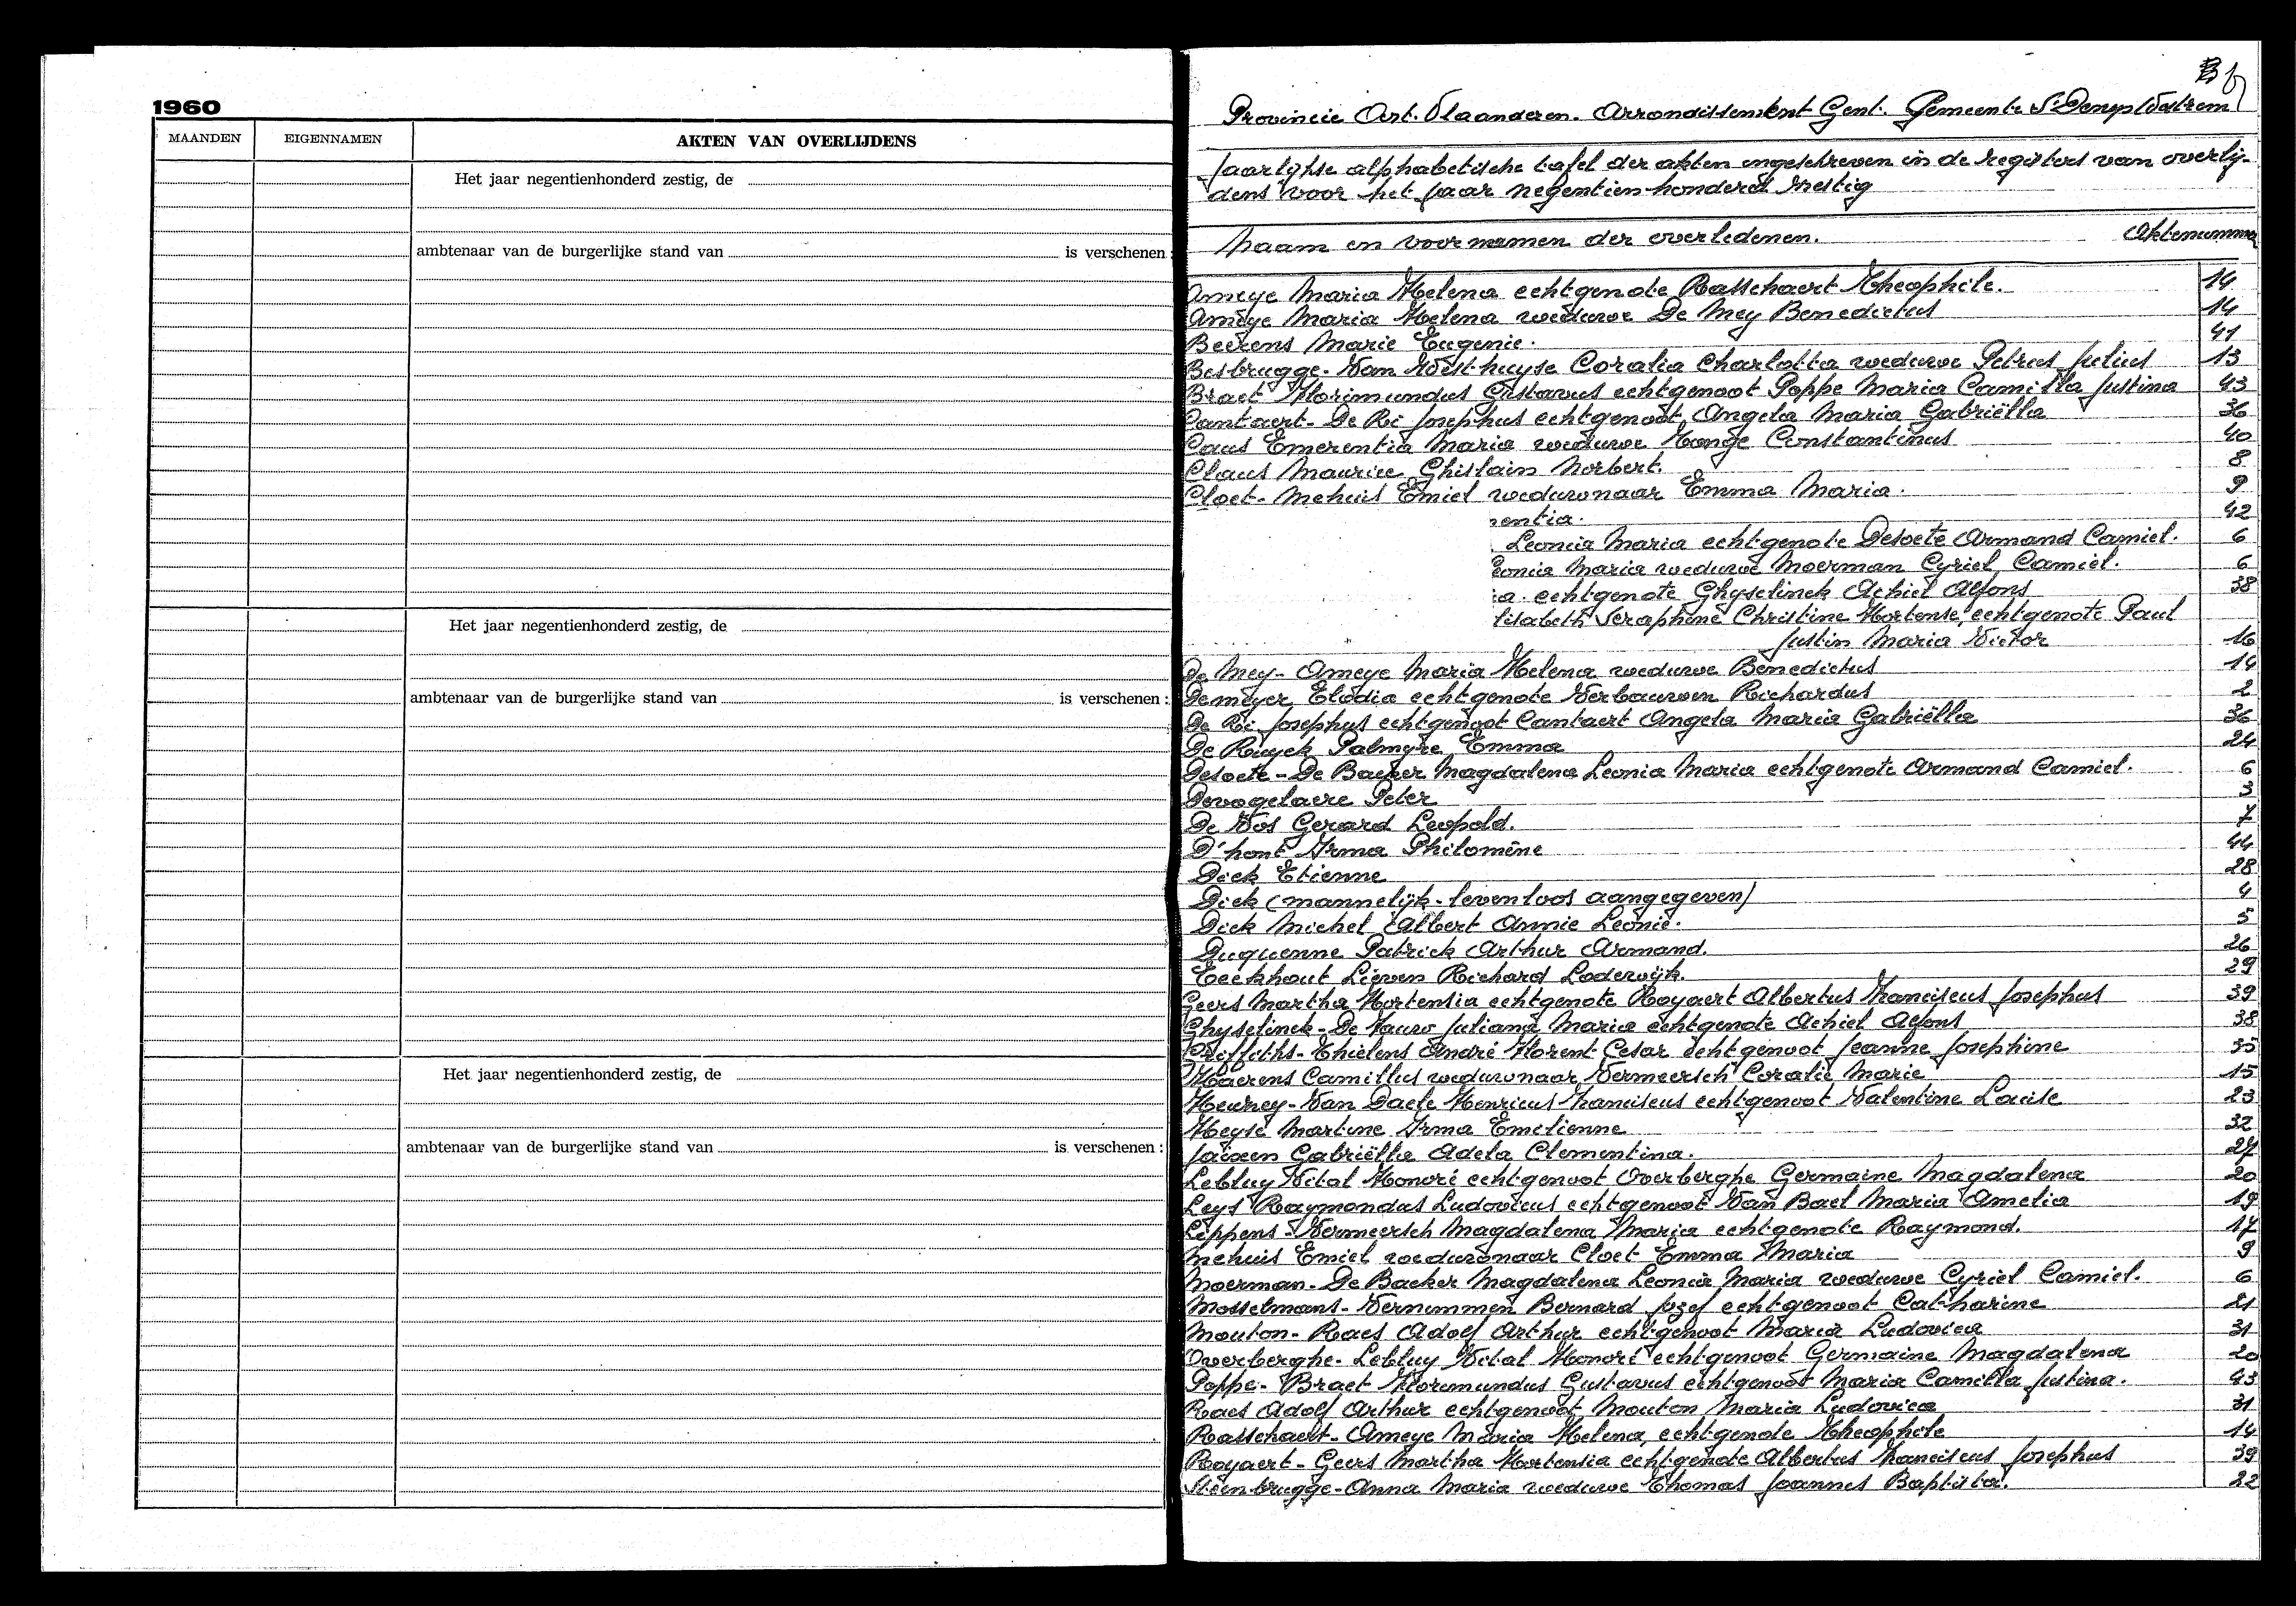 1960
MAANDEN EIGENNAMEN AKTEN VAN OVERLIJDENS
Het jaar negentienhonderd zestig, de
ambtenaar van de burgerlijke stand van is verschenen :
Het jaar negentienhonderd zestig, de
ambtenaar van de burgerlijke stand van is verschenen :
Het jaar negentienhonderd zestig, de
ambtenaar van de burgerlijke stand van is verschenen :
Provincie Oost. Vlaanderen. Arrondissement Gent. Gemeente
Jaarlijkse alphabetische tafel der akten ingeschreven in de registers van overlij-
dens voor het jaar negentien honderd zestig
Naam en voornamen der overledenen. Aktenummer
Ameye Maria Helena echtgenote Rasschaert Theophile. 14
Ameye Maria Helena weduwe De Mey Benedictus 14
Beekens Marie Eugenie. 41
Besbrugge-Van Westhuyse Coralia Charlotta weduwe Petrus Julius 13
Braet Florimundus Gustavus echtgenoot Poppe Maria Camilla Justina 43
Cantaert-De Ri Josephus echtgenoot Angela Maria Gabriëlla 36
Caus Emerentia Maria weduwe Constantinus 40
Claus Maurice Ghislain Norbert. 8
Cloet-Mehuis Emiel weduwnaar Emma Maria. 9
rentia. 42
Leonia Maria echtgenote Desoete Armand Camiel. 6
eonia Maria weduwe Moerman Cyriel Camiel. 6
ia echtgenote Ghyselinck Achiel Alfons 38
lisabeth Seraphine Christine Hortense echtgenote Paul
Justin Maria Victor 16
De Mey-Ameye Maria Helena weduwe Benedictus 14
Demeyer Elodia echtgenote Verbauwen Richardus 2
De Ri Josephus echtgenoot Cantaert Angela Maria Gabriëlla 36
De Ruyck Palmyre Emma 24
Desoete-De Baeker Magdalena Leonia Maria echtgenote Armand Camiel. 6
Devogelaere Peter 3
De Vos Gerard Leopold. 7
D'hont Irma Philomène 44
Dick Etienne 28
Dick (mannelijk-levenloos aangegeven) 4
Dick Michel Albert Annie Leonie. 5
Duquenne Patrick Arthur Armand. 26
Eeckhout Lieven Richard Lodewijk. 29
Geers Martha Hortensia echtgenote Royaert Albertus Franciscus Josephus 39
Ghyselinck-De Juliana Maria echtgenote Achiel Alfons 38
Griffiths-Thielens André Florent Cesar echtgenoot Jeanne Josephine 35
Haerens Camillus weduwnaar Vermeersch Coralie Marie 15
Van Daele Henricus Franciscus echtgenoot Valentine Louise 23
Heyse Martine Irma Emilienne 32
Gabriëlla Adela Clementina. 27
Lebluy Vital Honoré echtgenoot Overberghe Germaine Magdalena 20
Leys Raymondus Ludovicus echtgenoot Van Bael Maria Amelia 19
Lippens-Vermeersch Magdalena Maria echtgenote Raymond. 17
Mehuis Emiel weduwnaar Cloet Emma Maria 9
Moerman-De Baeker Magdalena Leonia Maria weduwe Cyriel Camiel. 6
Mosselmans-Vernimmen Bernard Jozef echtgenoot Catharine 21
Mouton-Raes Adolf Arthur echtgenoot Maria Ludovica 31
Overberghe-Lebluy Vital Honoré echtgenoot Germaine Magdalena 20
Poppe-Braet Florimundus Gustavus echtgenoot Maria Camilla Justina. 43
Raes Adolf Arthur echtgenoot Mouton Maria Ludovica 31
Rasschaert-Ameye Maria Helena, echtgenote Theophile 14
Royaert-Geers Martha Hortensia echtgenote Albertus Franciscus Josephus 39
Steenbrugge-Anna Maria weduwe Thomas Joannes Baptista. 22